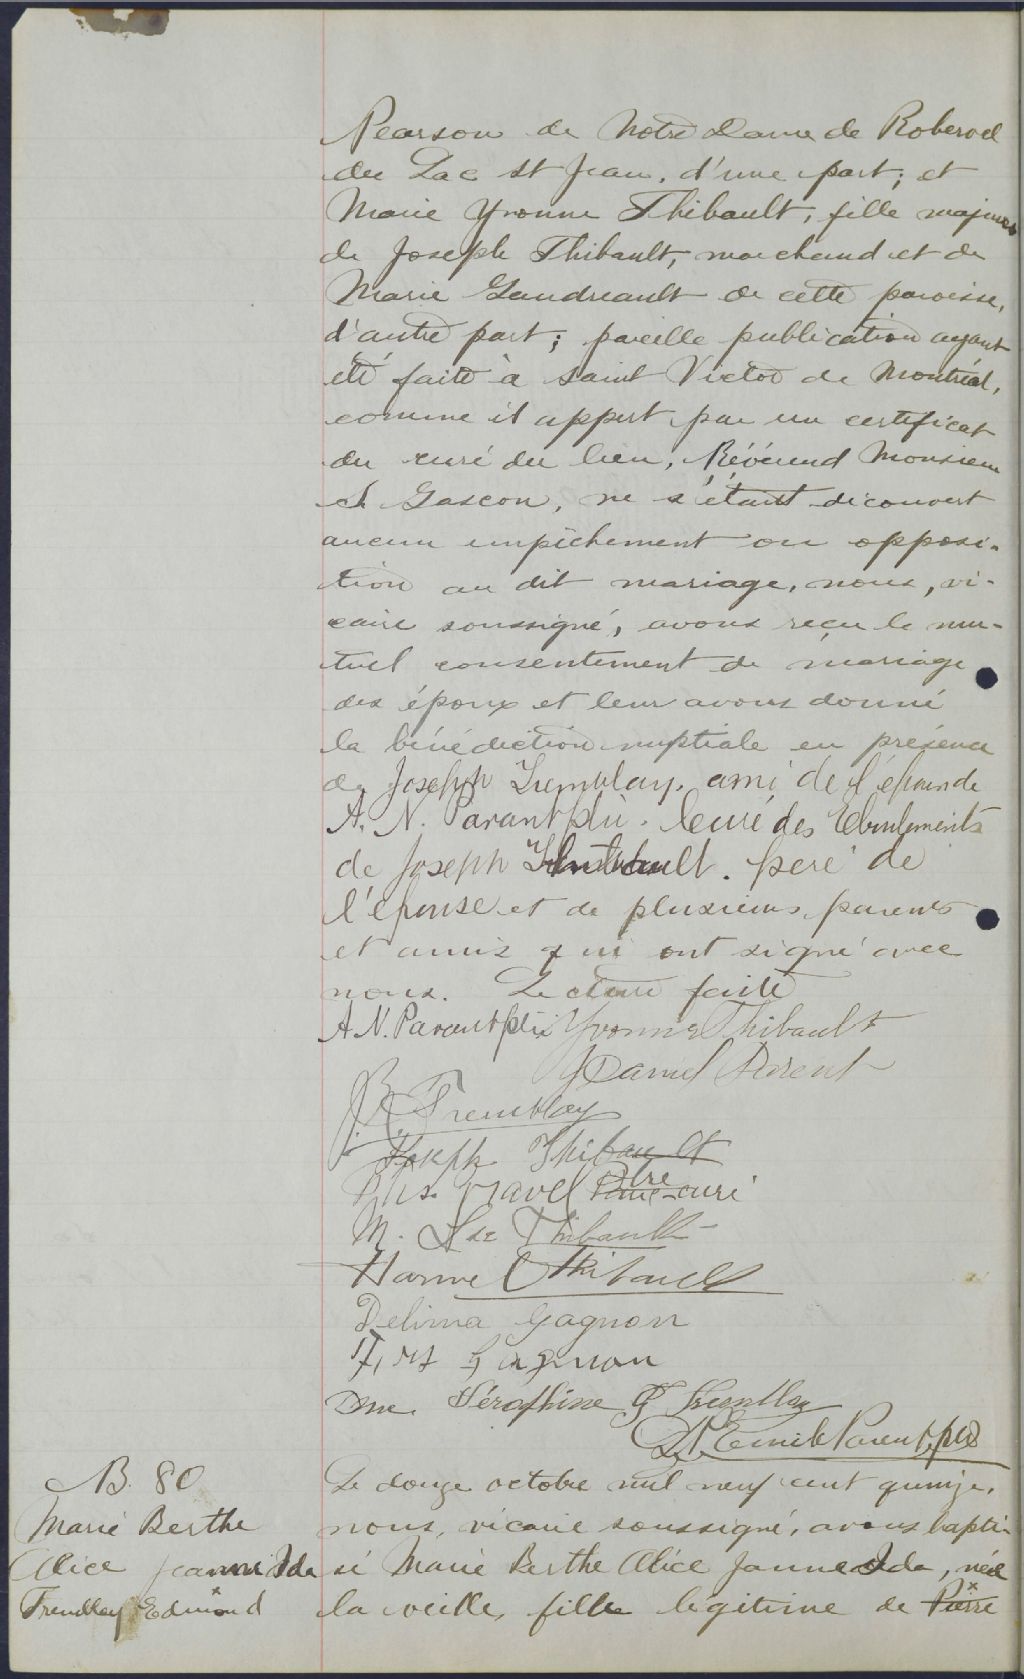 Pearson de Notre Dame de Roberval
du Lac St Jean, d'une part; et
Marie Yvonne Thibault, fille majeure
de Joseph Thibault, marchand et de
Marie Gaudreault de cette paroisse,
d'autre part; pareille publication ayant
été faite à Saint Victor de Montréal,
comme il appert par un certificat
du curé du lieu, Révérend Monsieur
Gascon, ne s'étant découvert
aucun empêchement ou opposi-
tion au dit mariage, nous, vi-
caire soussigné, avons reçu le mu-
tuel consentement de mariage
des époux et leur avons donné
la bénédiction nuptiale en présence
de Joseph Tremblay, ami de l'époux de
A. N. Parant ptre. Curé des Eboulements
de Joseph Thibault. père de
l'épouse et de plusieurs parents
et amis qui ont signé avec
nous. Lecture faite
A. N. Parant ptre Yvonne Thibault
Daniel Parent
Tremblay
Joseph Thibault
Gravel Ptre curé
M. Thibault
Thibault
Delima Gagnon
Gagnon
Dme. Séraphine G Tremblay
Emile Parent, ptre
B. 80
Marie Berthe
Alice Jeanne Ida
Tremblay Edmond
Le douze octobre mil neuf cent quinze,
nous, vicaire soussigné, avons bapti-
sé Marie Berthe Alice Jeanne Ida, née
la veille, fille légitime de Pierre